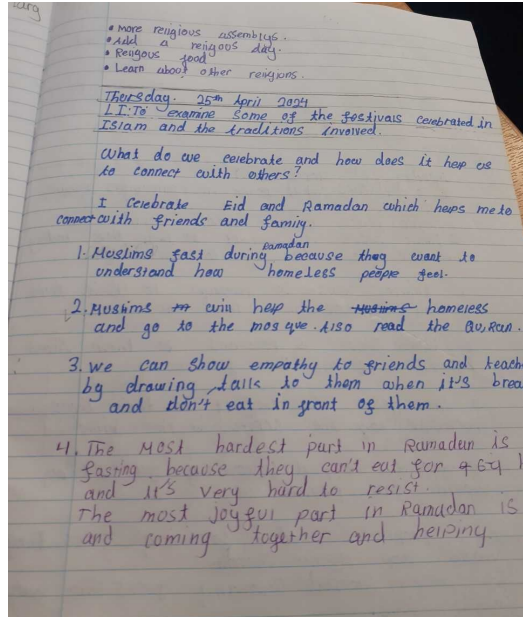 • More religious assemblys.
• Add a reiigous day.
• Reiigous food
• Learn about other reiigions.
Thursday. 25th April 2024
L I: To examine some of the festivals celebrated in
Islam and the traditions involved.
What do we celebrate and how does it help us
to connect with others?
I celebrate Eid and Ramadan which helps me to
connect with friends and family.
1. Muslims fast during Ramadan because they want to
understand how homeless people feel.
2. Muslims will help the homeless
and go to the mosque. Also read the Qu,Ran.
3. We can show empathy to friends and teach
by drawing, talk to them when it's brea
and don't eat in front of them.
4. The most hardest part in Ramadan is
fasting because they can't eat for
and it's very hard to resist.
The most joyful part in Ramadan is
and coming together and helping